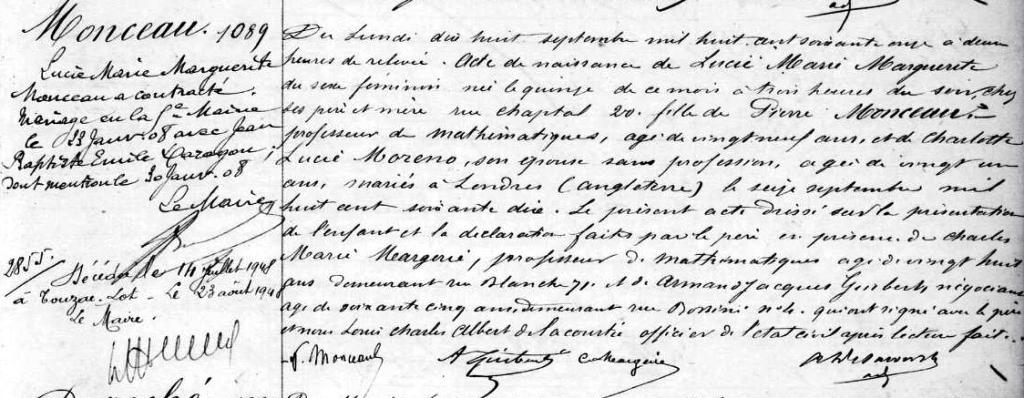 Monceau. 1089
Lucie Marie Marguerite
Monceau a contracté
mariage en la Mairie
le 23 Janv. 08 avec Jean
Baptiste Emile
dont mention le 30 Janv. 08
Le Maire
2855.
Décédée le 14 juillet 1948
à Touzac. Lot - Le 23 août 1948
Le Maire.
Du Lundi dix huit septembre mil huit cent soixante onze à deux
heures de relevée. Acte de naissance de Lucie Marie Marguerite
du sexe féminin née le quinze de ce mois à trois heures du soir, chez
ses père et mère rue Chaptal 20. fille de Pierre Monceau
professeur de mathématiques, agé de vingt neuf ans, et de Charlotte
Lucie Moreno, son épouse sans profession, agée de vingt un
ans, mariés à Londres (angleterre) le seize septembre mil
huit cent soixante dix. Le présent acte dressé sur la présentation
de l'enfant et la déclaration faits par le père en présence de Charles
Marie Meargerie, professeur de mathématiques agé de vingt huit
ans demeurant rue Blanche 71. et de Armand Jacques négociant
agé de soixante cinq ans, demeurant rue Rossini qui ont signé avec le père
et nous Louis Charles Albert de la courtie officier de l'état civil après lecture faite.
P. Monceau